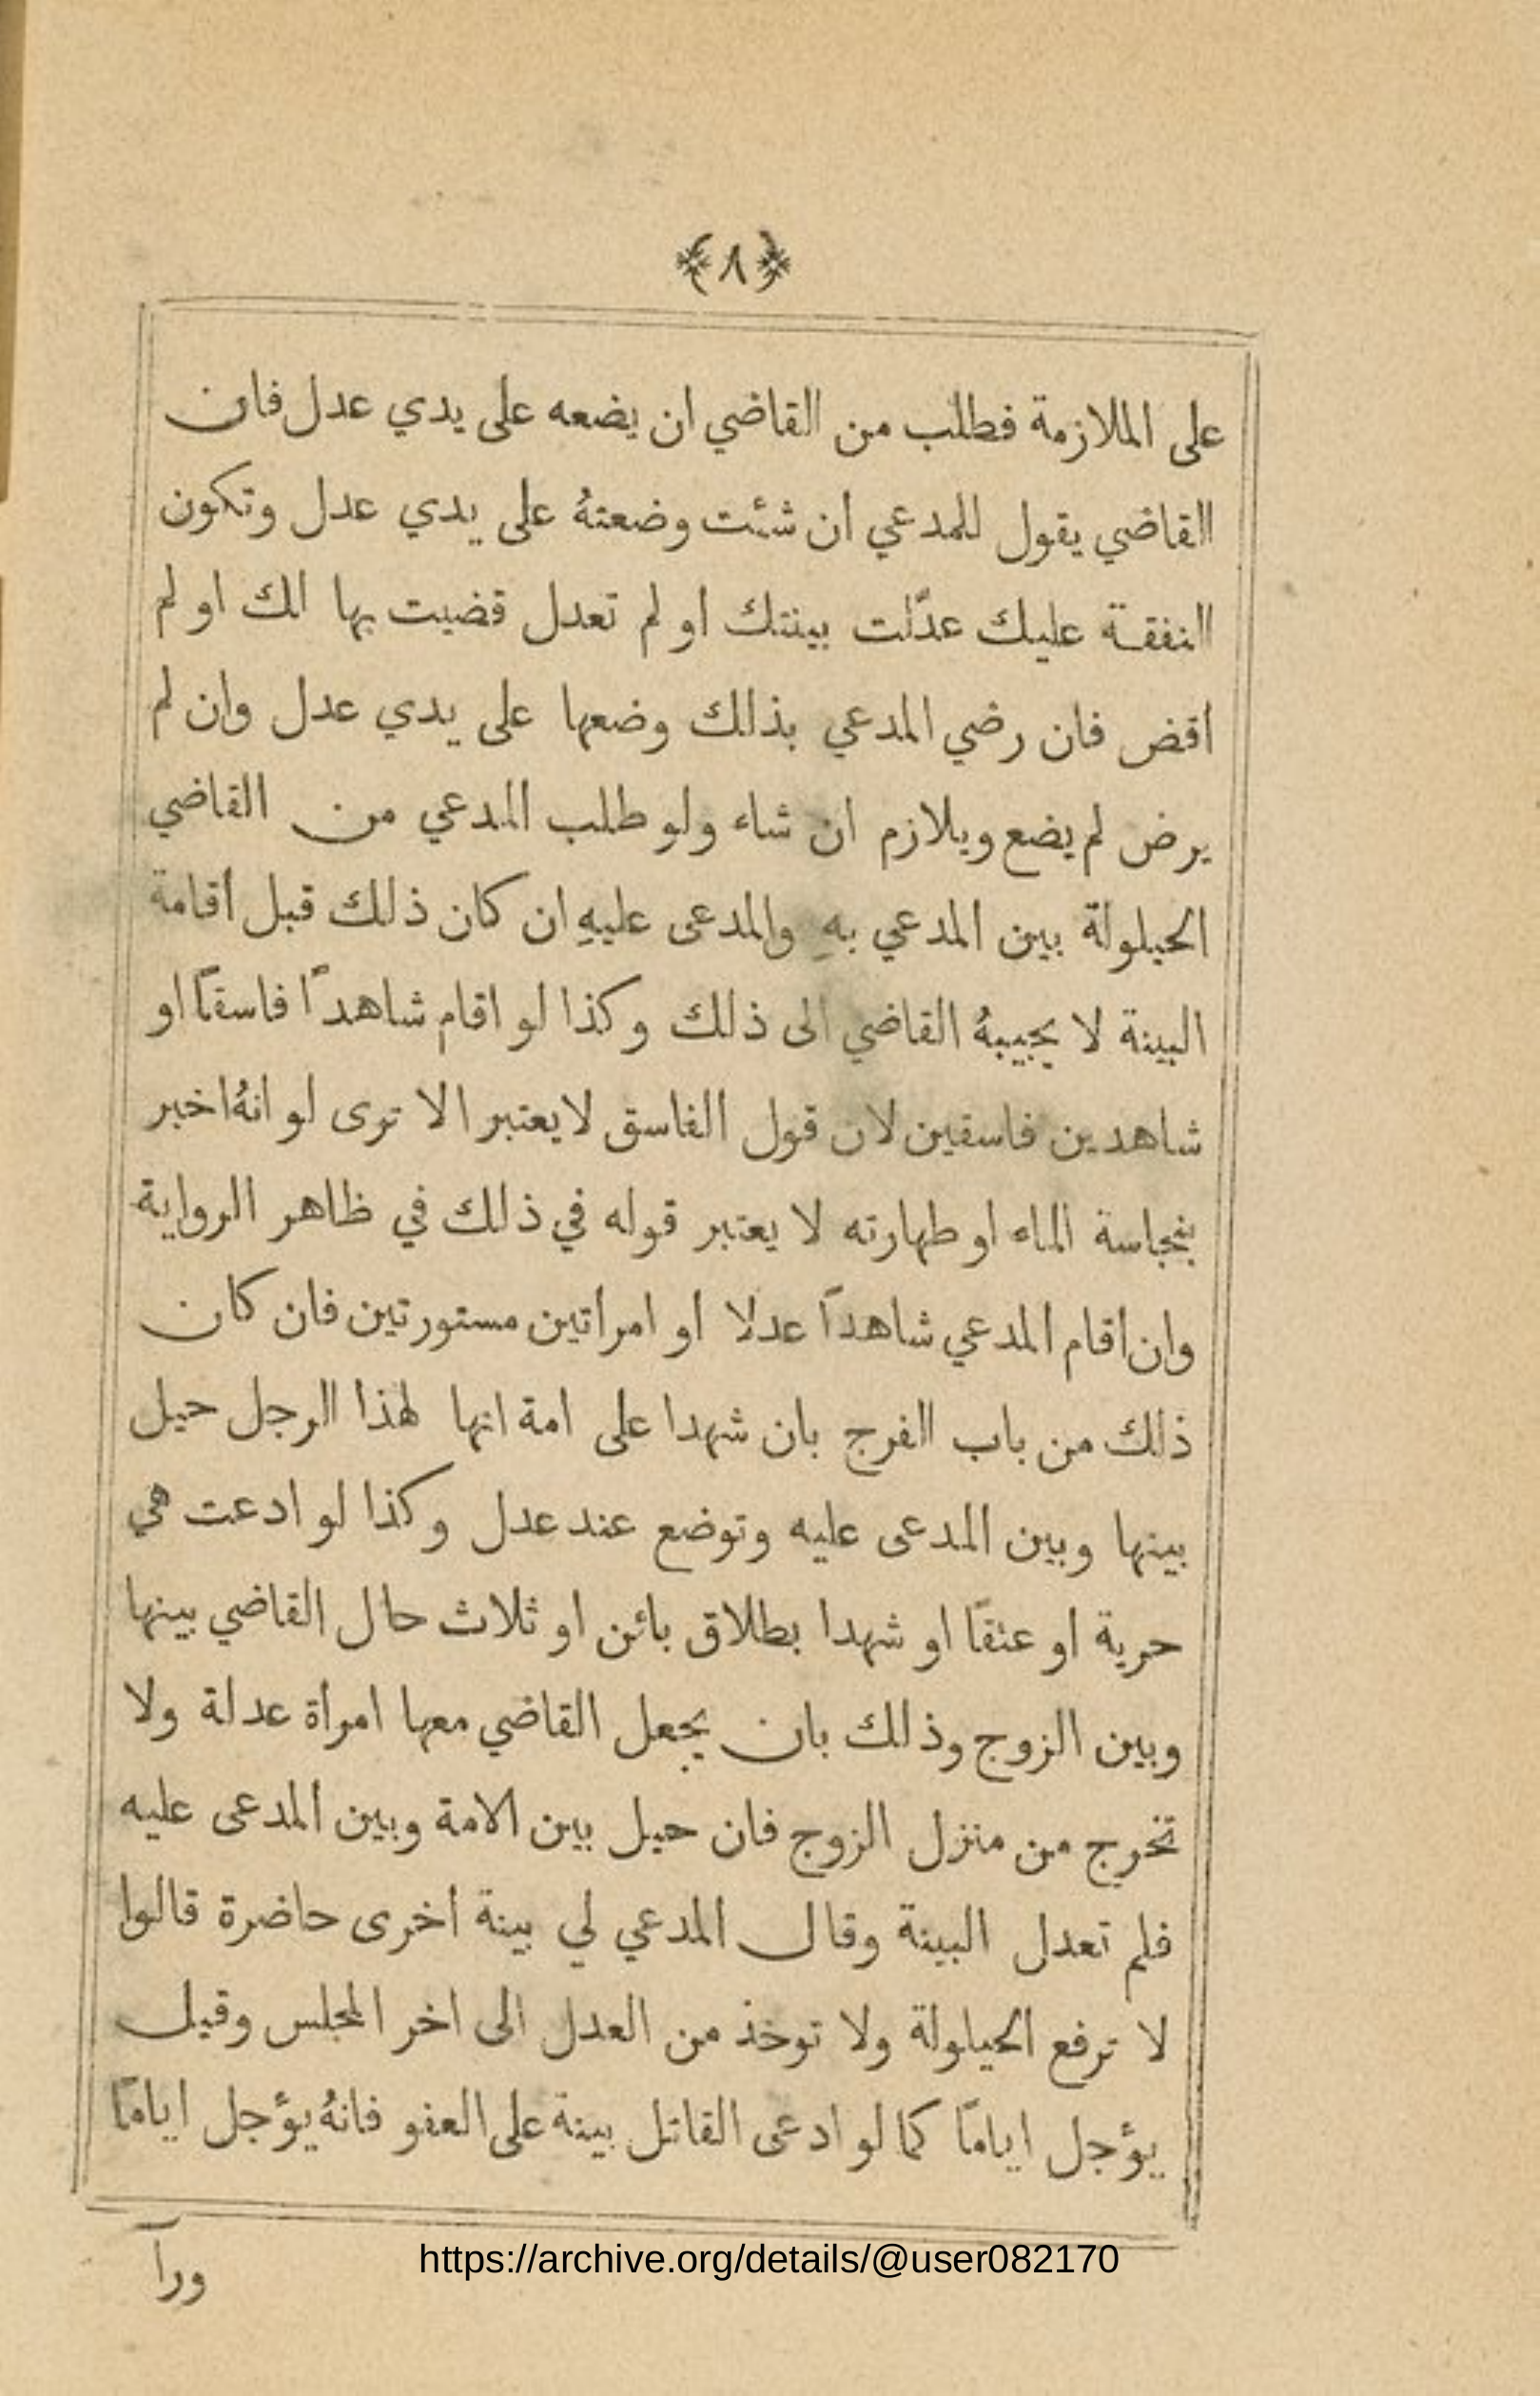 ﴿٨﴾
على الملازمة فطلب من القاضي ان يضعه على يدي عدل فان
القاضي يقول للمدعي ان شئت وضعتهُ على يدي عدل وتكون
النفقة عليك عدّلت بينتك او لم تعدل قضيت بها لك او لم
اقض فان رضي المدعي بذلك وضعها على يدي عدل وان لم
يرض لم يضع ويلازم ان شاء ولو طلب المدعي من القاضي
الحيلولة بين المدعي بهِ والمدعى عليهِ ان كان ذلك قبل أقامة
البينة لا يجيبهُ القاضي الى ذلك وكذا لو اقام شاهدًا فاسقًا او
شاهدين فاسقين لان قول الفاسق لا يعتبر الا ترى لو انهُ اخبر
بنجاسة الماء او طهارته لا يعتبر قوله في ذلك في ظاهر الرواية
وان أقام المدعي شاهدًا عدلا او امرأتين مستورتين فان كان
ذلك من باب الفرج بان شهدا على امة انها لهذا الرجل حيل
بينها وبين المدعى عليه وتوضع عند عدل وكذا لو ادعت هي
حرية او عتقًا او شهدا بطلاق بائن او ثلاث حال القاضي بينها
وبين الزوج وذلك بان يجعل القاضي معها امرأة عدلة ولا
تخرج من منزل الزوج فان حيل بين الامة وبين المدعى عليه
فلم تعدل البينة وقال المدعي لي بينة أخرى حاضرة قالوا
لا ترفع الحيلولة ولا توخذ من العدل الى اخر المجلس وقيل
يؤجل ايامًا كما لو ادعى القاتل بينة على العفو فانهُ يؤجل ايامًا
ورآ
https://archive.org/details/@user082170